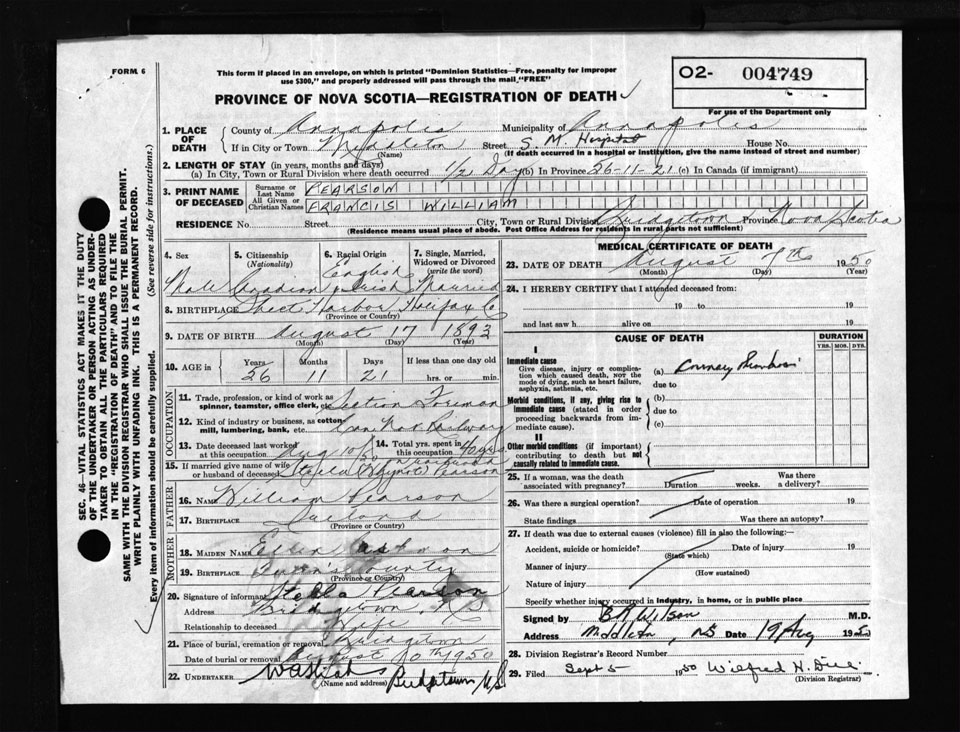 FORM 6
This form if placed in an envelope, on which is printed "Dominion Statistics—Free, penalty for improper
use $300," and properly addressed will pass through the mail, "FREE"
O2- 004749
For use of the Department only
PROVINCE OF NOVA SCOTIA—REGISTRATION OF DEATH
SEC. 46—VITAL STATISTICS ACT MAKES IT THE DUTY
OF THE UNDERTAKER OR PERSON ACTING AS UNDER-
TAKER TO OBTAIN ALL THE PARTICULARS REQUIRED
IN THE "REGISTRATION OF DEATH" AND TO FILE THE
SAME WITH THE DIVISION REGISTRAR WHO SHALL ISSUE THE BURIAL PERMIT.
WRITE PLAINLY WITH UNFADING INK. THIS IS A PERMANENT RECORD.
Every item of information should be carefully supplied. (See reverse side for instructions.)
1. PLACE OF DEATH County of Annapolis Municipality of Annapolis
If in City or Town Middleton Street S. M. Hospital House No.
(Name) (If death occurred in a hospital or institution, give the name instead of street and number)
2. LENGTH OF STAY (in years, months and days)
(a) In City, Town or Rural Division where death occurred 1/2 Day (b) In Province 56-11-21 (c) In Canada (if immigrant)
3. PRINT NAME OF DECEASED Surname or Last Name PEARSON
All Given or Christian Names FRANCIS WILLIAM
RESIDENCE No. Street City, Town or Rural Division Bridgetown Province Nova Scotia
(Residence means usual place of abode. Post Office Address for residents in rural parts not sufficient)
4. Sex 5. Citizenship (Nationality) 6. Racial Origin 7. Single, Married, Widowed or Divorced (write the word)
English
Male Canadian Irish Married
8. BIRTHPLACE Sheet Harbor Halifax Co
(Province or Country)
9. DATE OF BIRTH August 17 1893
(Month) (Day) (Year)
10. AGE in Years Months Days If less than one day old
56 11 21 hrs. or min.
OCCUPATION
11. Trade, profession, or kind of work as spinner, teamster, office clerk, etc. Section Foreman
12. Kind of industry or business, as cotton-mill, lumbering, bank, etc. Can Nat Railway
13. Date deceased last worked at this occupation Aug 14. Total yrs. spent in this occupation 40 yrs
15. If married give name of wife or husband of deceased Stella Pearson
FATHER
16. NAME William Pearson
17. BIRTHPLACE
(Province or Country)
MOTHER
18. MAIDEN NAME Ellen
19. BIRTHPLACE Queen's County
(Province or Country)
20. Signature of informant Stella Pearson
Address Bridgetown, N.S
Relationship to deceased Wife
21. Place of burial, cremation or removal
Date of burial or removal August 10th 1950
22. UNDERTAKER Bridgetown N.S
(Name and address)
MEDICAL CERTIFICATE OF DEATH
23. DATE OF DEATH August 7th 1950
(Month) (Day) (Year)
24. I HEREBY CERTIFY that I attended deceased from:
19 to 19
and last saw h alive on 19
CAUSE OF DEATH DURATION
YRS. MOS. DYS.
I
Immediate cause
Give disease, injury or complication which caused death, NOT the mode of dying, such as heart failure, asphyxia, asthenia, etc.
(a) Coronary
due to
Morbid conditions, if any, giving rise to immediate cause (stated in order proceeding backwards from immediate cause).
(b)
due to
(c)
II
Other morbid conditions (if important) contributing to death but not causally related to immediate cause.
25. If a woman, was the death associated with pregnancy? Duration weeks. Was there a delivery?
26. Was there a surgical operation? Date of operation 19
State findings Was there an autopsy?
27. If death was due to external causes (violence) fill in also the following:—
Accident, suicide or homicide? Date of injury 19
(State which)
Manner of injury
(How sustained)
Nature of injury
Specify whether injury occurred in industry, in home, or in public place
Signed by B R Wilson M.D.
Address Middleton, NS Date 19 Aug 195
28. Division Registrar's Record Number
29. Filed Sept 5 1950 Wilfred H.
(Division Registrar)